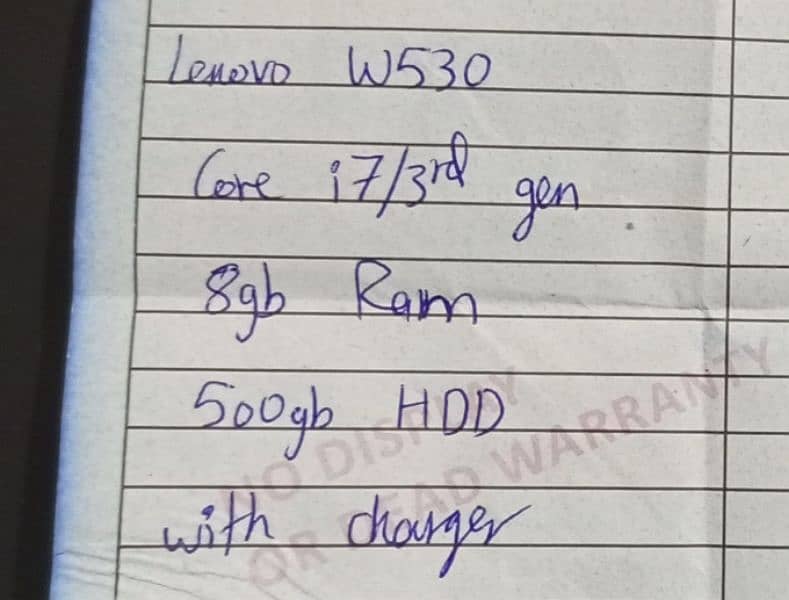 Lenovo W530
Core i7/3rd gen
8gb Ram
500gb HDD
with charger
NO DISPLAY
OR DEAD WARRANTY